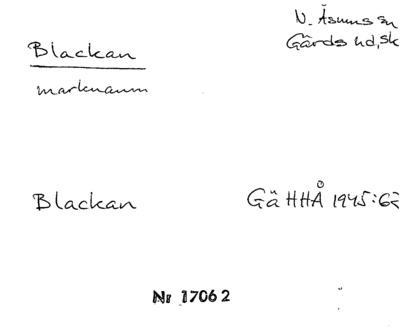 N. Åsums sn
Blackan
Gärds hd, Sk
marknamn
Blackan GäHHÅ 1945:62
Nr 17062